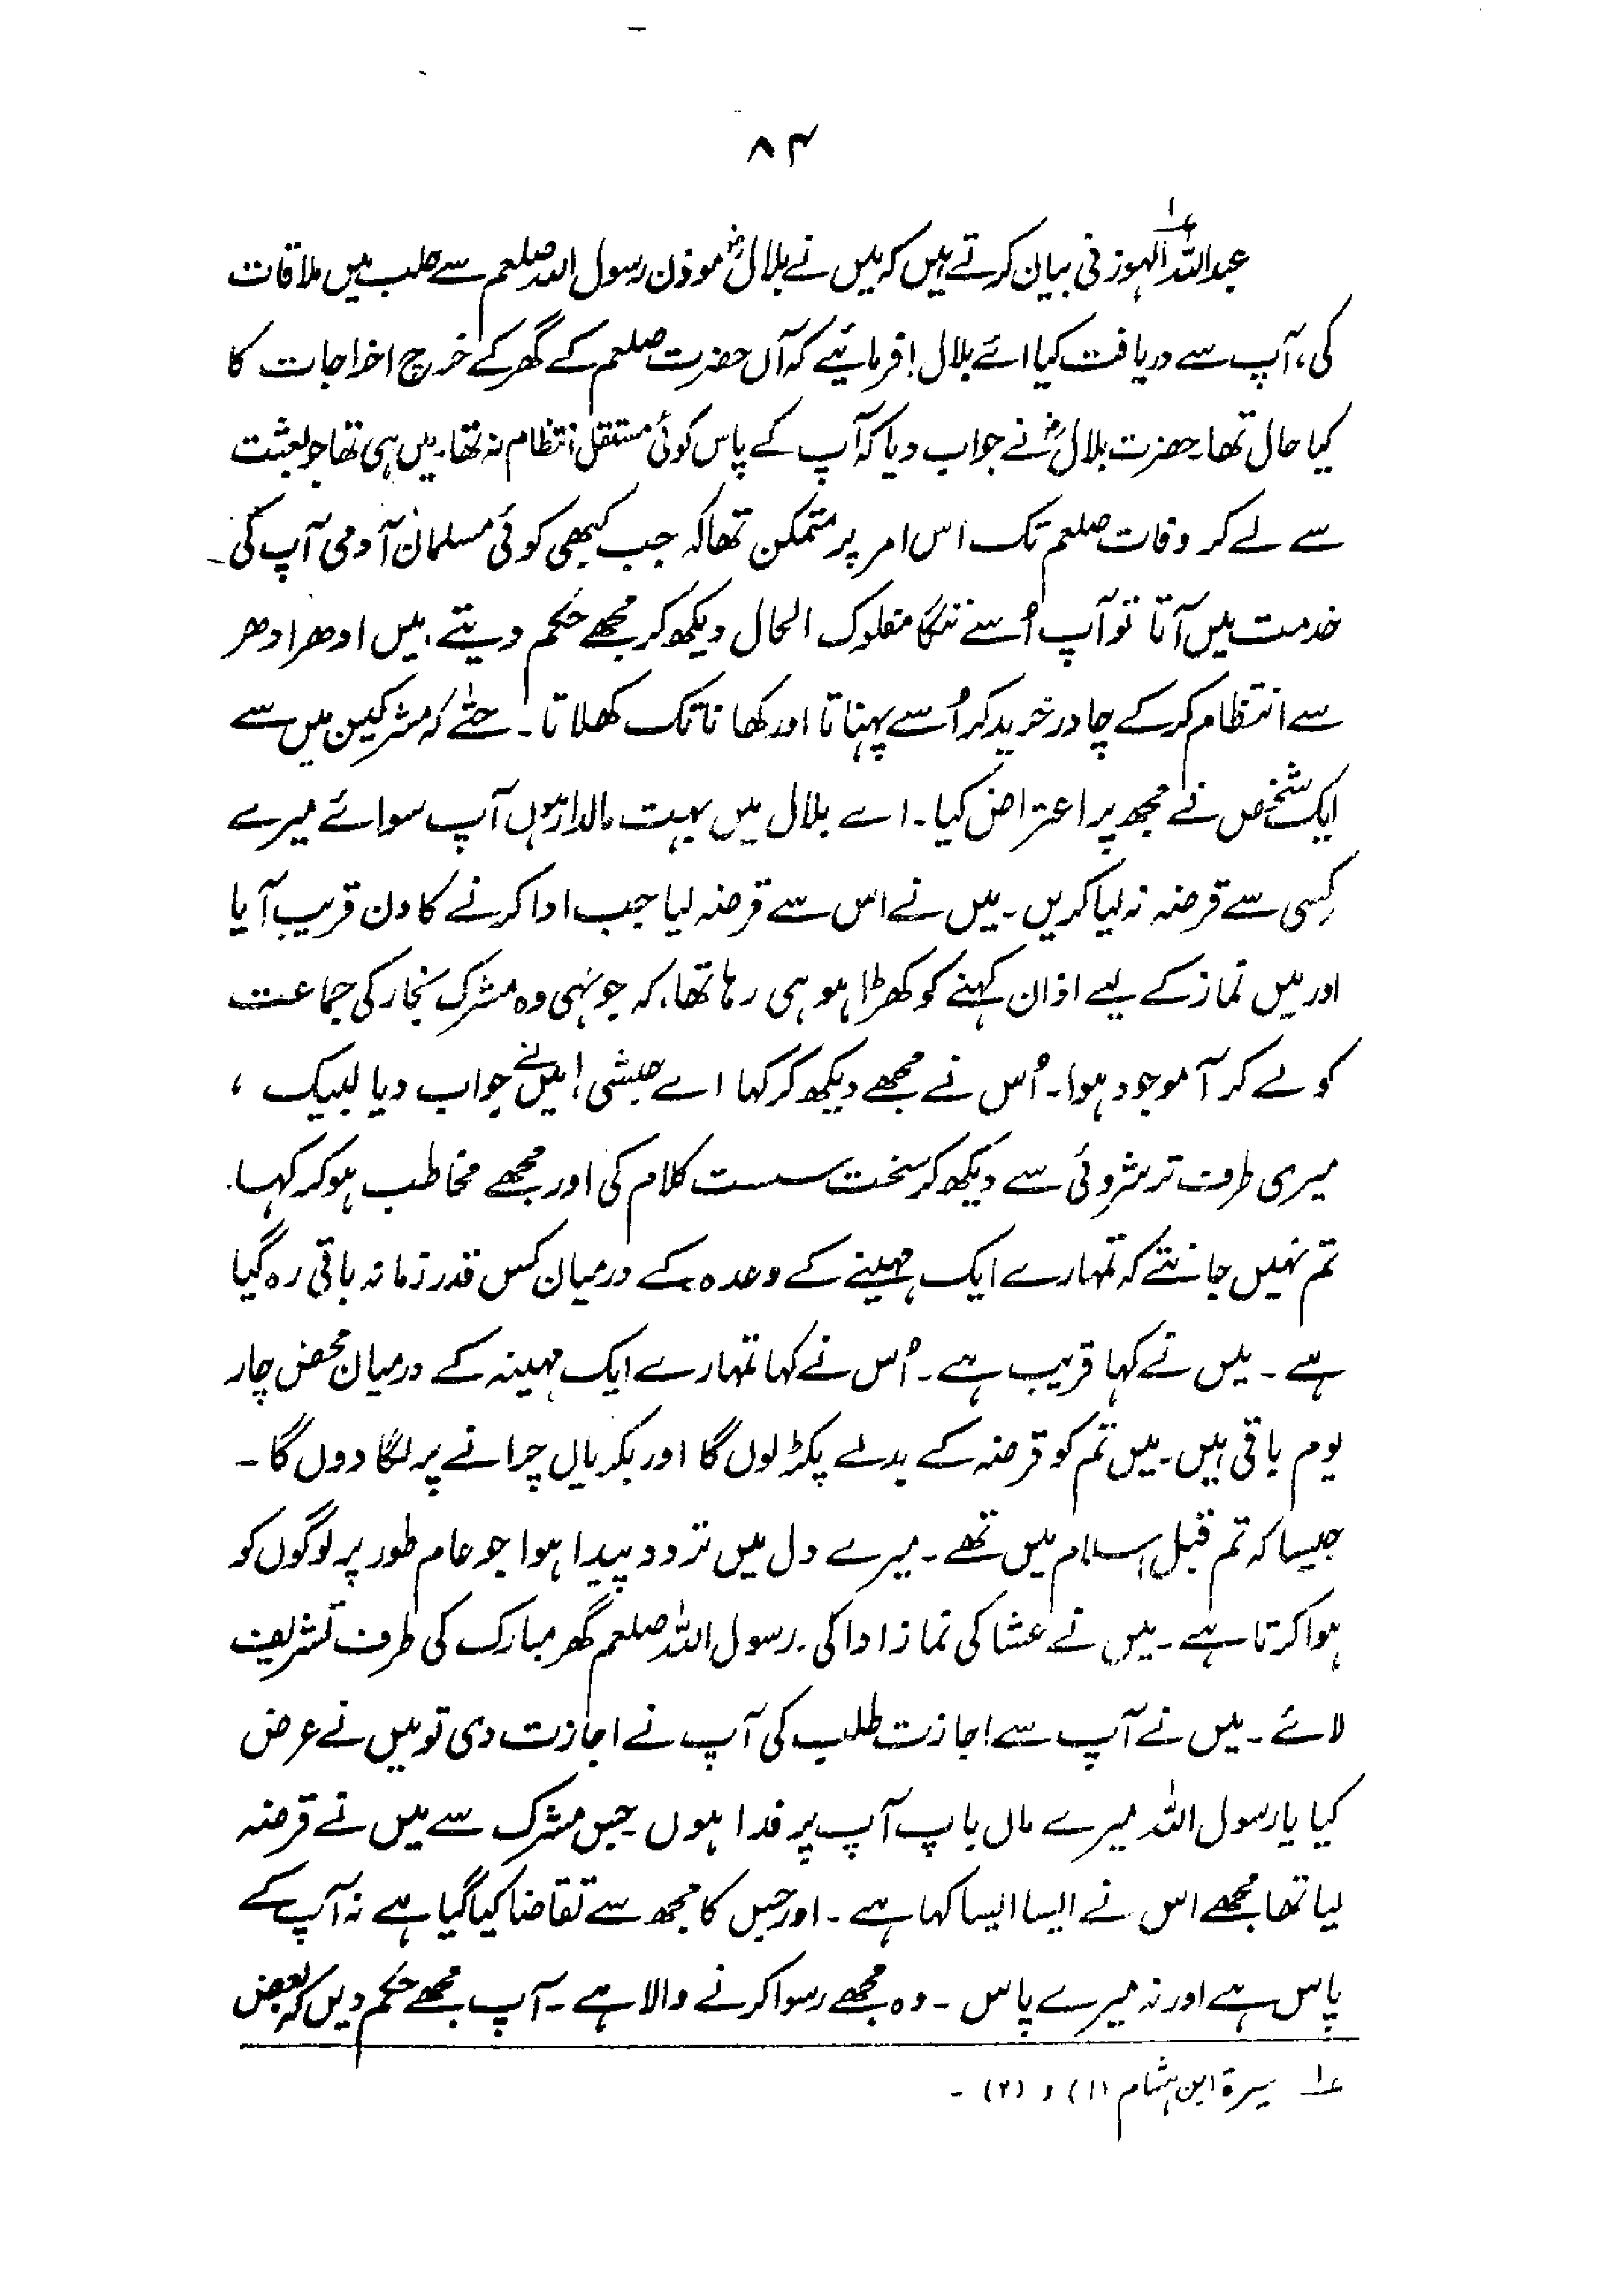 ۸۴
عبداللہ الہوزنی بیان کرتے ہیں کہ میں نے بلالؓ موذن رسول اللہ صلعم سے حلب میں ملاقات
کی، آپ سے دریافت کیا ائے بلال! فرمائیے کہ آں حضرت صلعم کے گھر کے خرچ اخراجات کا
کیا حال تھا۔ حضرت بلالؓ نے جواب دیا کہ آپ کے پاس کوئی مستقل انتظام نہ تھا۔ میں ہی تھا جو بعثت
سے لے کر وفات صلعم تک اس امر پر متمکن تھا کہ جب کبھی کوئی مسلمان آدمی آپ کی
خدمت میں آتا تو آپ اُسے ننگا مفلوک الحال دیکھ کر مجھے حکم دیتے، میں ادھر ادھر
سے انتظام کر کے چادر خرید کر اُسے پہناتا اور کھانا تک کھلاتا۔ حتٰے کہ مشرکین میں سے
ایک شخص نے مجھ پر اعتراض کیا۔ اے بلال میں بہت مالدار ہوں آپ سوائے میرے
کسی سے قرضہ نہ لیا کریں۔ میں نے اس سے قرضہ لیا جب ادا کرنے کا دن قریب آیا
اور میں نماز کے لیے اذان کہنے کو کھڑا ہو ہی رہا تھا، کہ جونہی وہ مشرک تجار کی جماعت
کو لے کر آ موجود ہوا۔ اُس نے مجھے دیکھ کر کہا اے حبشی! میں نے جواب دیا لبیک ،
میری طرف ترشروئی سے دیکھ کر سخت سست کلام کی اور مجھے مخاطب ہو کر کہا۔
تم نہیں جانتے کہ تمہارے ایک مہینے کے وعدہ کے درمیان کس قدر زمانہ باقی رہ گیا
ہے۔ میں نے کہا قریب ہے۔ اُس نے کہا تمہارے ایک مہینہ کے درمیان محض چار
یوم باقی ہیں۔ میں تم کو قرضہ کے بدلے پکڑ لوں گا اور بکریاں چرانے پر لگا دوں گا۔
جیسا کہ تم قبل اسلام میں تھے۔ میرے دل میں تردد پیدا ہوا جو عام طور پر لوگوں کو
ہوا کرتا ہے۔ میں نے عشا کی نماز ادا کی۔ رسول اللہ صلعم گھر مبارک کی طرف تشریف
لائے۔ میں نے آپ سے اجازت طلب کی آپ نے اجازت دی تو میں نے عرض
کیا یا رسول اللہ میرے ماں باپ آپ پر فدا ہوں جس مشرک سے میں نے قرضہ
لیا تھا مجھے اس نے ایسا ایسا کہا ہے۔ اور جس کا مجھ سے تقاضا کیا گیا ہے نہ آپ کے
پاس ہے اور نہ میرے پاس۔ وہ مجھے رسوا کرنے والا ہے۔ آپ مجھے حکم دیں کہ بعض
؏۱ سیرۃ ابن ہشام (۱) و (۲)۔